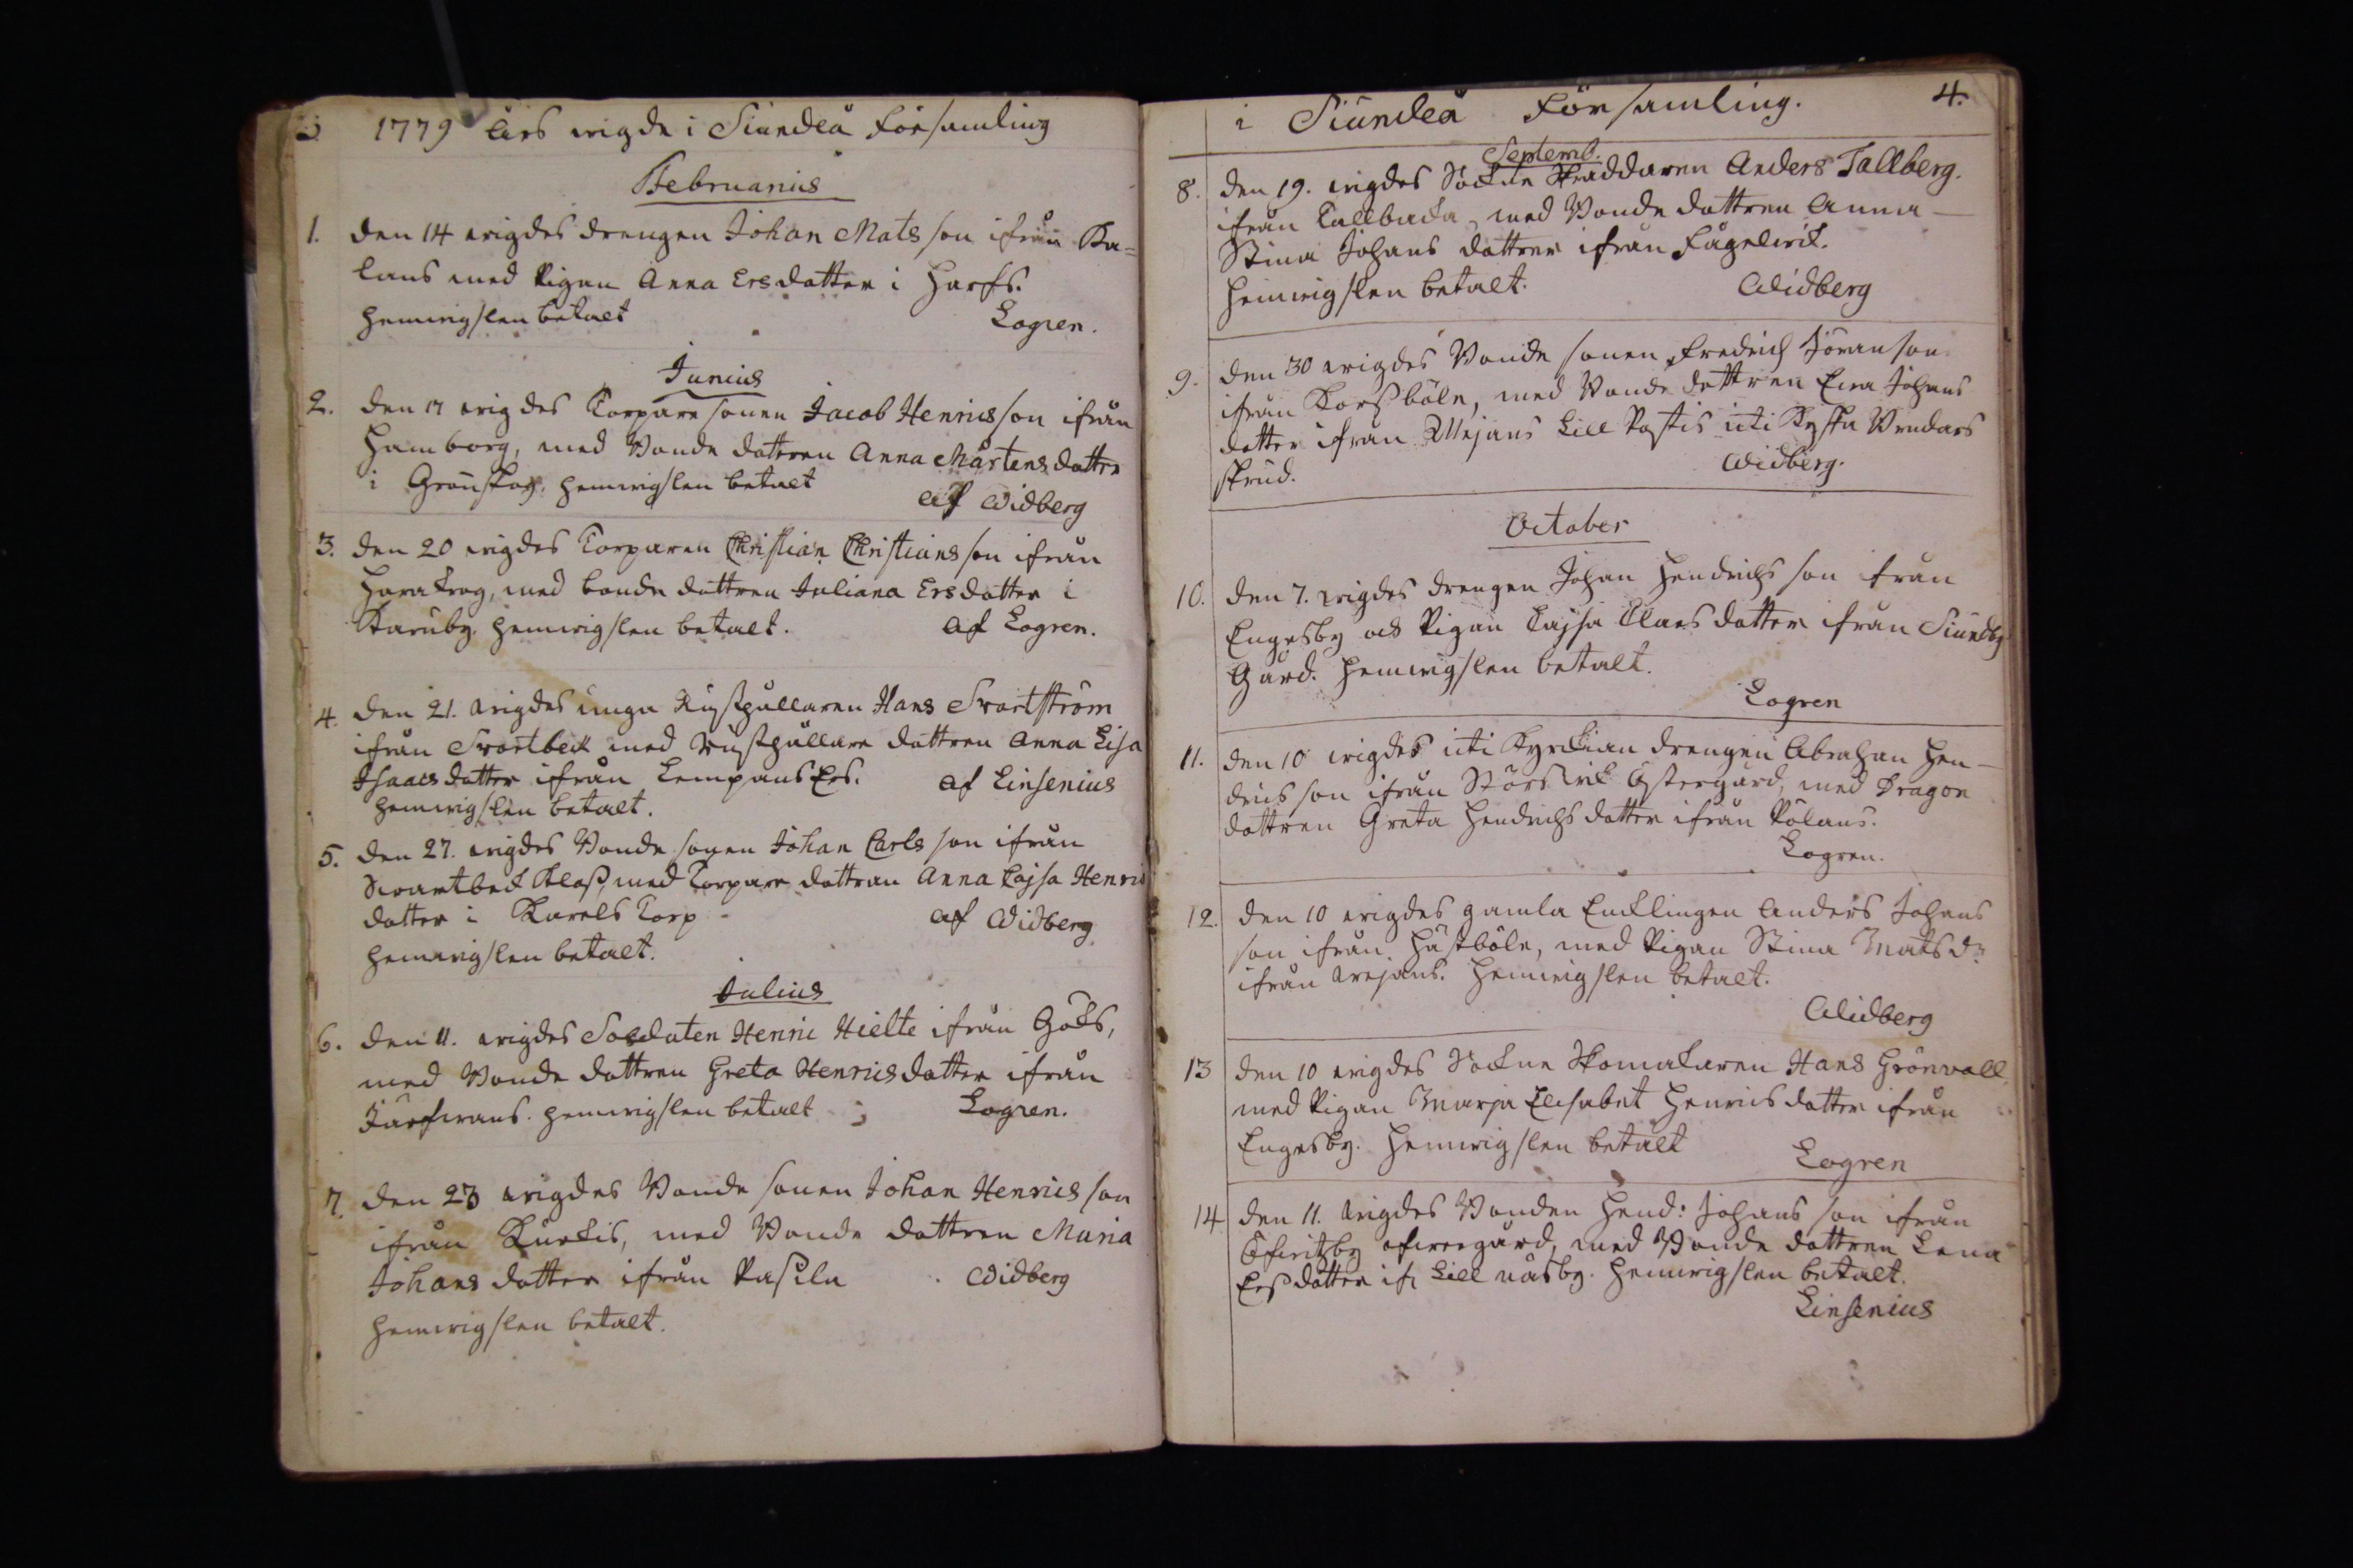 3 1779 Års wigde i Siundeå Församling
Februarius
1. den 14 wigdes drengen Johan Mats son ifrån Ka=
lans med Pigan Anna Ersdotter i Harfs.
hemwigslen betalt Logren.
Junius
2. den 17 wigdes Torpare sonen Jacob Henricsson ifrån
Hamborg, med Bonde dottren Anna Mårtens dotter
i Grönskog. hemwigslen betalt
af Widberg
3. den 20 wigdes Torparen Christian Christians son ifrån
Harakrog, med bonde dottren Juliana Ersdotter i
Karuby. hemwigslen betalt. af Logren.
4. den 21. wigdes unga Rusthållaren Hans Svartström
ifrån Svartbeck med Rusthållare dottren Anna Lisa
Isaacs dotter ifrån Lempans Ers. af Linsenius
hemwigslen betalt.
5. den 27. wigdes Bonde sonen Johan Carls son ifrån
Swartbeck Klas, med Torpare dottren Anna Cajsa Henric
dotter i Karels Torp af Widberg
hemwigslen betalt.
Julius
6. den 11. wigdes Soldaten Henric Hielte ifrån Göks,
med Bonde dottren Greta Henrics dotter ifrån
Järfwans. hemwigslen betalt Logren.
7. den 23 wigdes Bonde sonen Johan Henrics son
ifrån Kurkis, med Bonde dottren Maria
Johans dotter ifrån Pasila Widberg
hemwigslen betalt.
i Siundeå Församling. 4.
Septemb.
8. den 19. wigdes Sockne Skraddaren Anders Tallberg.
ifrån Tallbacka, med Bonde dottren Anna
Stina Johans dotter ifrån Fågelwik.
hemwigslen betalt. Widberg
9. den 30 wigdes Bonde sonen Fredrich Jöran son
ifrån Korsböle, med Bonde dottren Ewa Johans
dotter ifrån Mejans Lill Pastis uti Kyrko Brudars
skrud. Widberg.
October
10. den 7. wigdes drengen Johan Hendrichs son ifrån
Engesby och Pigan Cajsa Claes dotter ifrån Siundby
Gård. hemwigslen betalt.
Logren
11. den 10 wigdes uti Kyrckian drengen Abraham Hen-
drics son ifrån Störsvik Östergård, med Dragon
dottren Greta Hendrichs dotter ifrån Pölans.
Logren.
12. den 10 wigdes gamla Encklingen Anders Johans
son ifrån Hästböle, med Pigan Stina Mats dr
ifrån Wejans. hemwigslen betalt.
Widberg
13 den 10 wigdes Sockne Skomakaren Hans Grönvall,
med Pigan Marja Elisabet Henrics dotter ifrån
Engesby. hemwigslen betalt Logren
14 den 11. wigdes Bonden Hend: Johans son ifrån
Öfwitzby öfwregård, med Bonde dottren Lena
Ersdotter ifr Lill näsby. hemwigslen betalt.
Linsenius